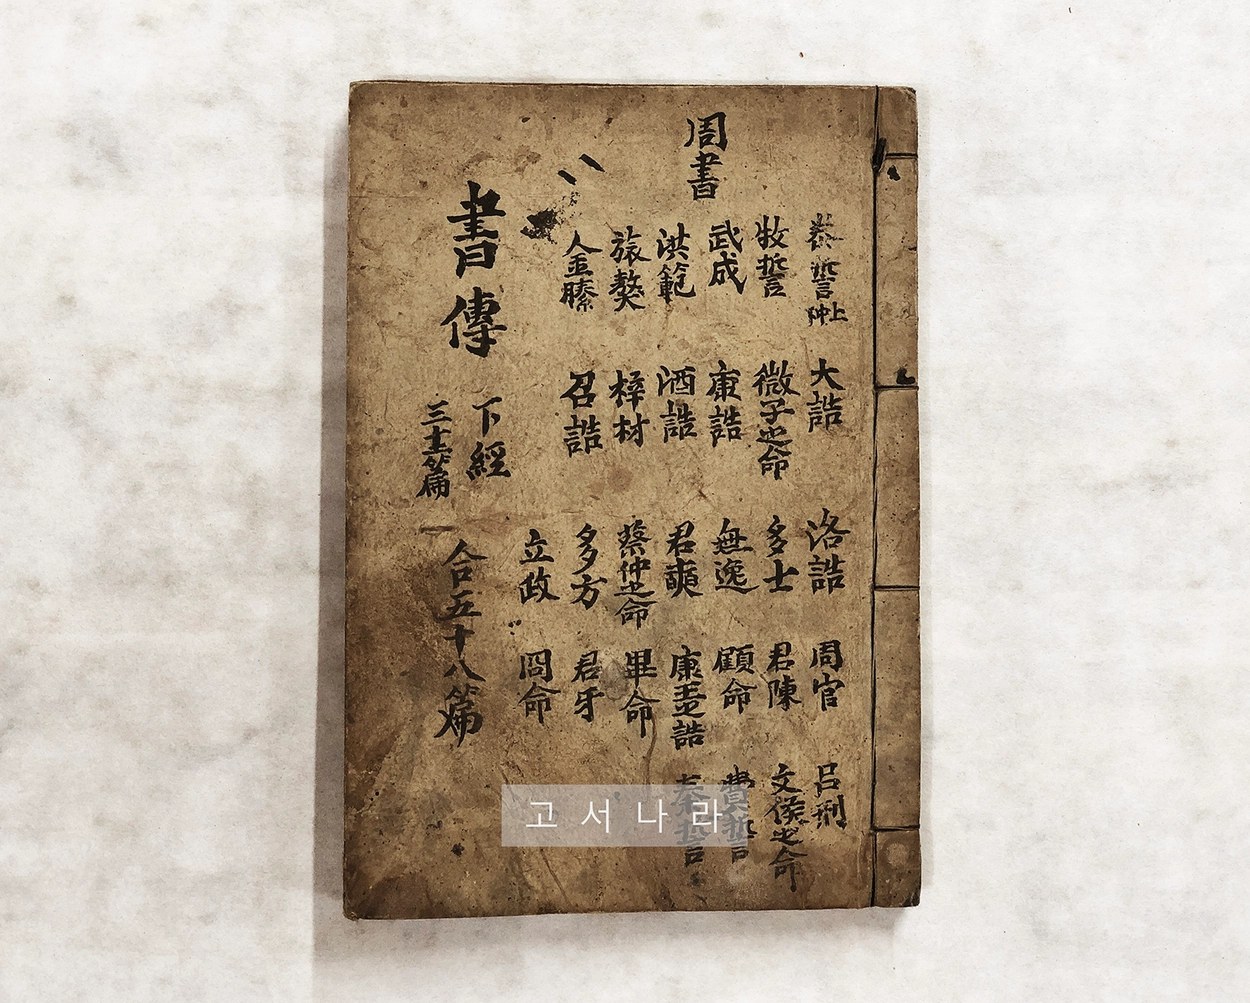 周書
泰誓上中下
牧誓
武成
洪範
旅獒
金縢
大誥
微子之命
康誥
酒誥
梓材
召誥
洛誥
多士
無逸
君奭
蔡仲之命
多方
立政
周官
君陳
顧命
康王之誥
畢命
君牙
冏命
呂刑
文侯之命
費誓
秦誓
書傳
下經
篇
合五十八篇
고서나라